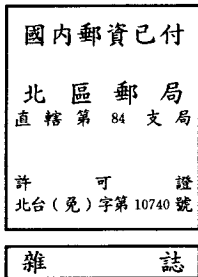 國内郵資已付
北區郵局
直轄第 84 支局
許可證
北台(免)字第 10740 號
雜誌